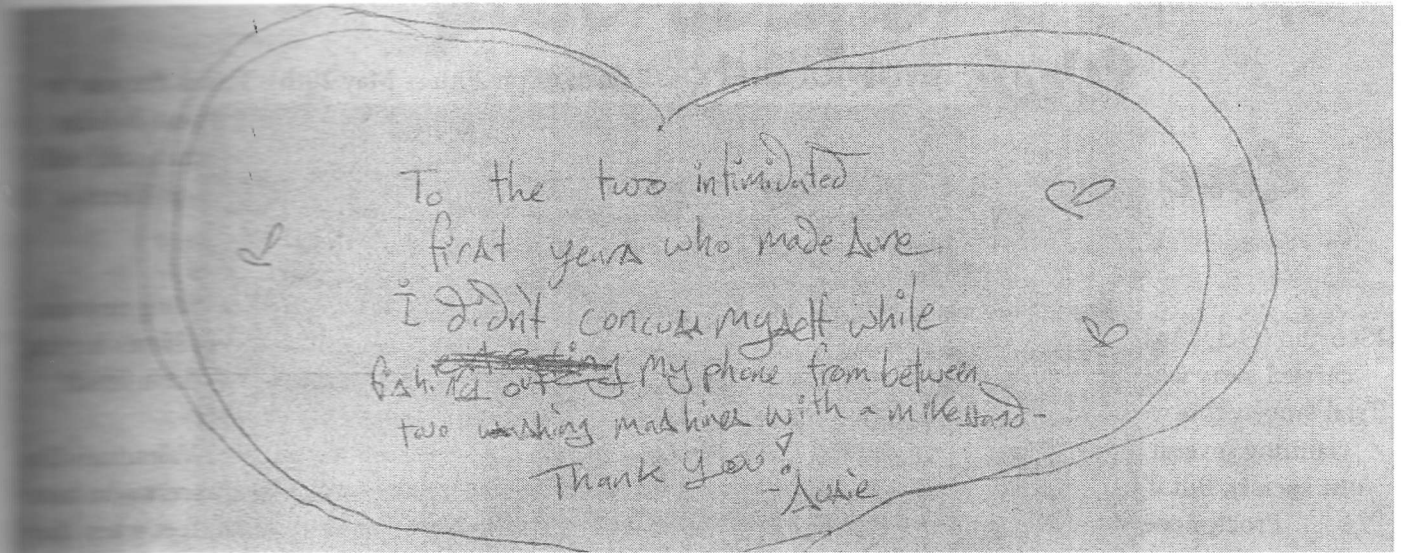 To the two intimidated
first years who made sure
I didn't concuss myself while
fishing out my phone from between
two washing machines with a mike stand-
Thank you!
-Susie